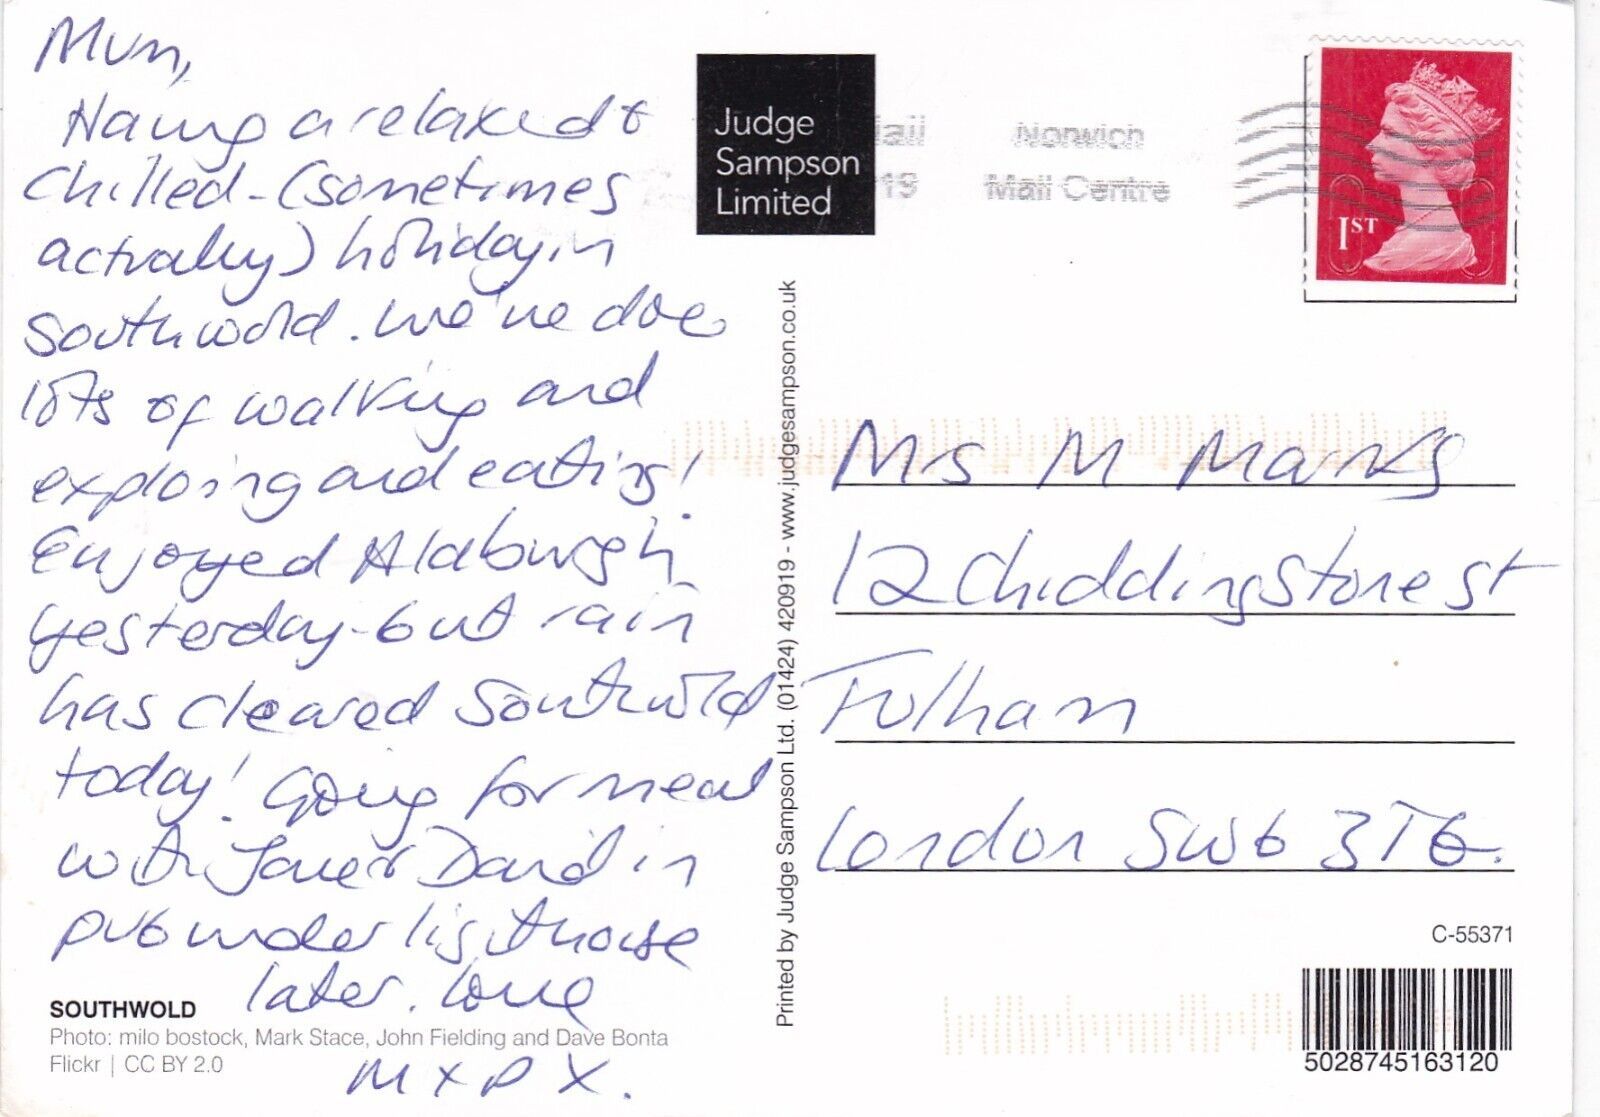 Mum,
Having a relaxed &
Chilled - (sometimes
actually) holiday in
Southwold. We've done
lots of walking and
exploring and eating!
Enjoyed Aldeburgh
yesterday - but rain
has cleared Southwold
today! Going for meal
with Jane & David in
pub under lighthouse
later. Love
M x P X.
SOUTHWOLD
Photo: milo bostock, Mark Stace, John Fielding and Dave Bonta
Flickr | CC BY 2.0
Judge
Sampson
Limited
Printed by Judge Sampson Ltd. (01424) 420919 - www.judgesampson.co.uk
Norwich
Mail Centre
1ST
Mrs M Marks
12 Chiddingstone St
Fulham
London SW6 3TG.
C-55371
5028745163120